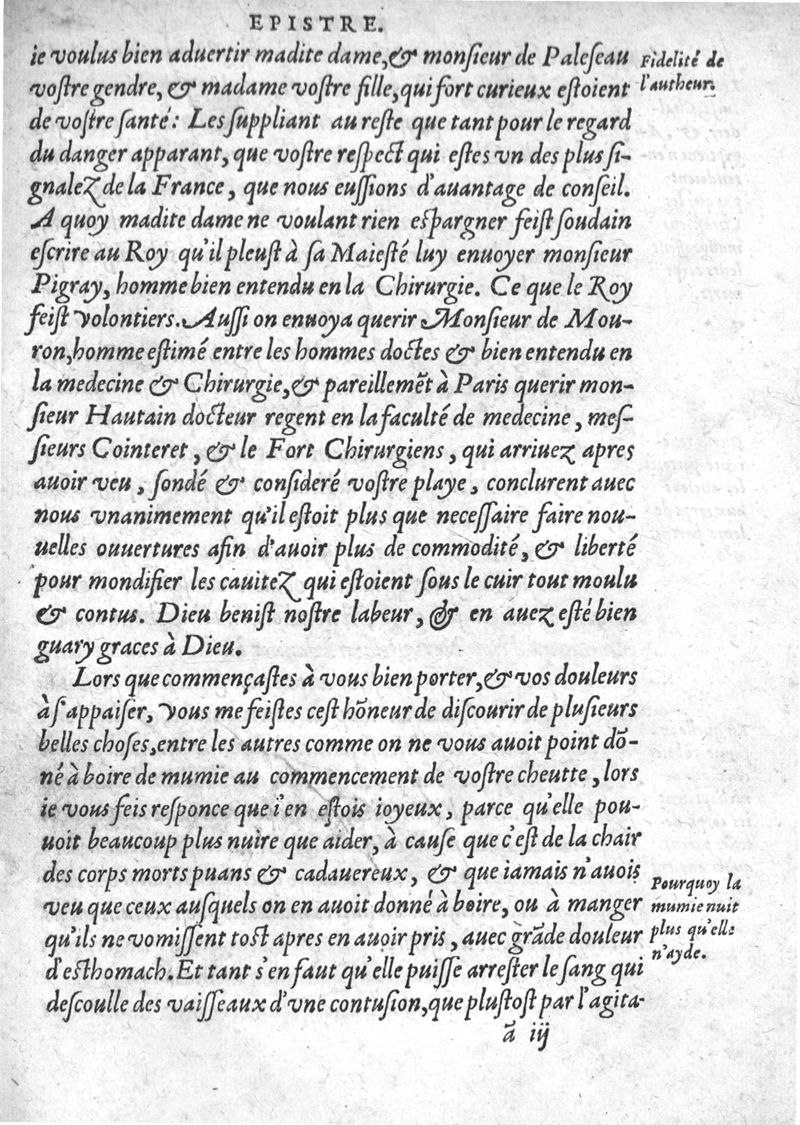 EPISTRE.
ie voulus bien aduertir madite dame, & monſieur de Paleſeau
voſtre gendre, & madame voſtre fille, qui fort curieux eſtoient
de voſtre ſanté: Les ſuppliant au reſte que tant pour le regard
du danger apparant, que voſtre reſpect qui eſtes vn des plus ſi-
gnalez de la France, que nous euſſions d'auantage de conſeil.
A quoy madite dame ne voulant rien eſpargner feiſt ſoudain
eſcrire au Roy qu'il pleuſt à ſa Maieſté luy enuoyer monſieur
Pigray, homme bien entendu en la Chirurgie. Ce que le Roy
feiſt volontiers. Auſſi on enuoya querir Monſieur de Mou-
ron, homme eſtimé entre les hommes doctes & bien entendu en
la medecine & Chirurgie, & pareillemēt à Paris querir mon-
ſieur Hautain docteur regent en la faculté de medecine, meſ-
ſieurs Cointeret, & le Fort Chirurgiens, qui arriuez apres
auoir veu, ſondé & conſideré voſtre playe, conclurent auec
nous vnanimement qu'il eſtoit plus que neceſſaire faire nou-
uelles ouuertures afin d'auoir plus de commodité, & liberté
pour mondifier les cauitez qui eſtoient ſous le cuir tout moulu
& contus. Dieu beniſt noſtre labeur, & en auez eſté bien
guary graces à Dieu.
Lors que commençaſtes à vous bien porter, & vos douleurs
à ſ'appaiſer, vous me feiſtes ceſt hōneur de diſcourir de pluſieurs
belles choſes, entre les autres comme on ne vous auoit point dō-
né à boire de mumie au commencement de voſtre cheutte, lors
ie vous feis reſponce que i'en eſtois ioyeux, parce qu'elle pou-
uoit beaucoup plus nuire que aider, à cauſe que c'eſt de la chair
des corps morts puans & cadauereux, & que iamais n'auois
veu que ceux auſquels on en auoit donné à boire, ou à manger
qu'ils ne vomiſſent toſt apres en auoir pris, auec grāde douleur
d'eſthomach. Et tant s'en faut qu'elle puiſſe arreſter le ſang qui
deſcoulle des vaiſſeaux d'vne contuſion, que pluſtoſt par l'agita-
ã iij
Fidelité de
l'autheur.
Pourquoy la
mumie nuit
plus qu'elle
n'ayde.